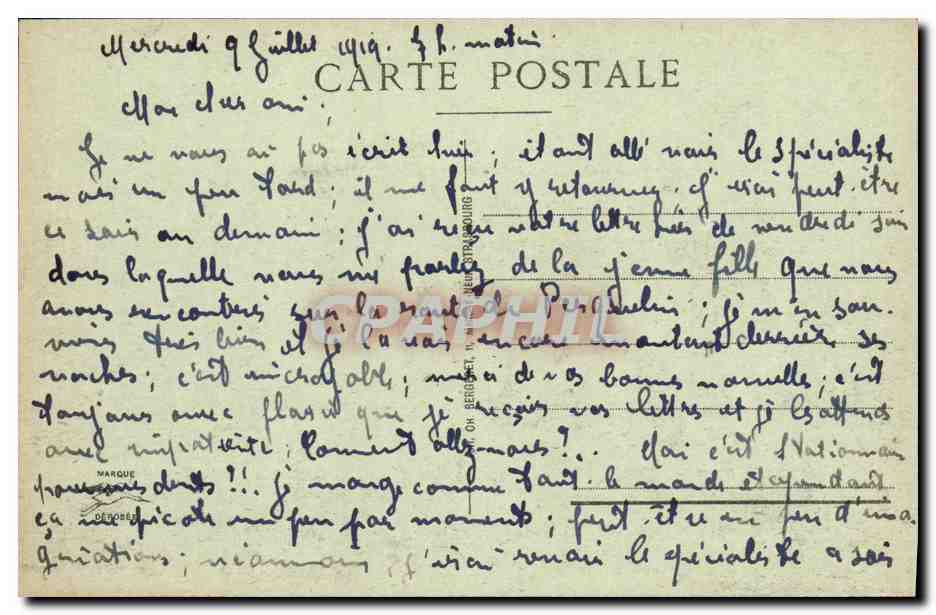 Mercredi 9 Juillet 1919. 7 h. matin
CARTE POSTALE
Mon cher ami,
Je ne vous ai pas écrit hier ; étant allé voir le spécialiste
mais un peu tard ; il me faut y retourner. J'irai peut-être
ce soir ou demain ; j'ai reçu votre lettre hier de vendredi soir
dans laquelle vous me parlez de la jeune fille que nous
avons rencontrés sur la route du ; je m'en sou-
viens très bien et je la vois encore montant derrière ses
vaches ; c'est incroyable ; merci de vos bonnes nouvelles ; c'est
toujours avec plaisir que je reçois vos lettres et je les attends
avec impatience ; Comment allez-vous ? . . Moi c'est Stationnaire
pour mes dents ? ! ! . je mange comme tout le monde et cependant
ça me picote un peu par moments ; peut-être un peu d'ima-
ginations ; néanmoins j'irai revoir le spécialiste ce soir
CH. BERGERET, STRASBOURG
MARQUE
DÉPOSÉE
CPAPHIL